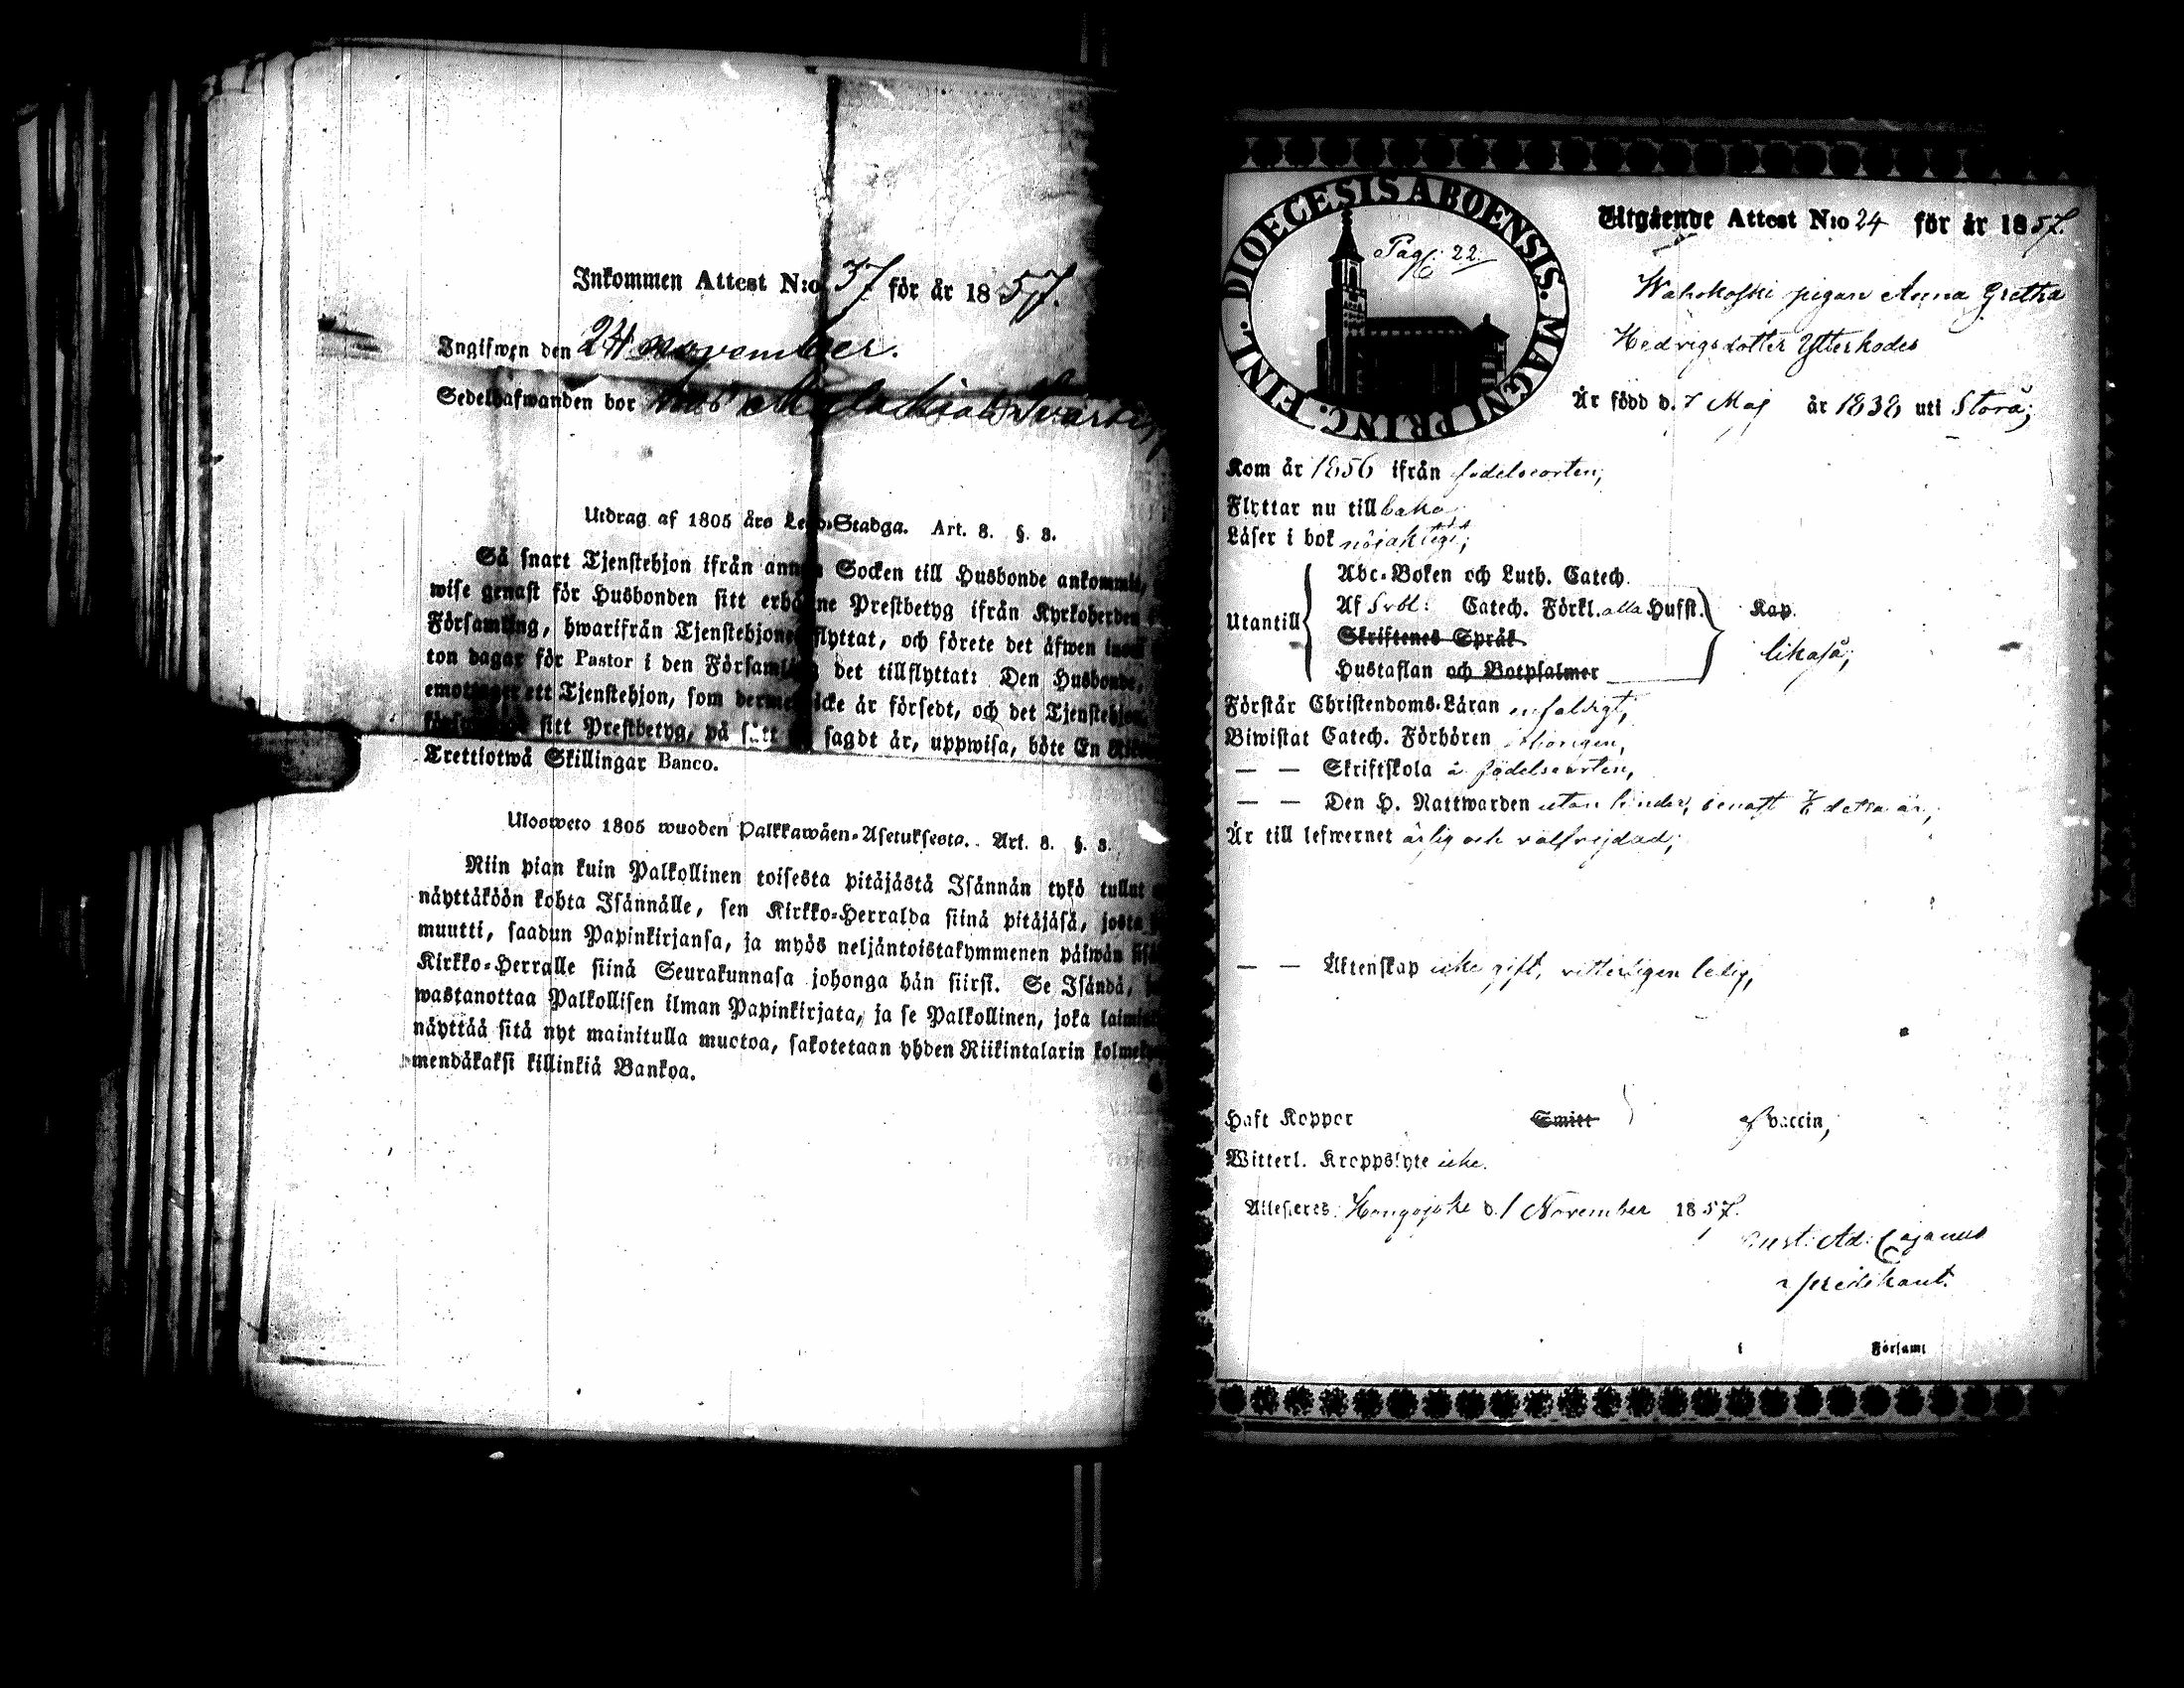 Inkommen Attest N:o 37 för år 1857.
Ingifwen den 24 november.
Sedelhafwanden bor hos
Utdrag af 1805 års Lego-Stadga. Art. 8. §. 8.
Så snart Tjenstehjon ifrån annan Socken till Husbonde ankommit,
wise genast för Husbonden sitt erhållne Prestbetyg ifrån Kyrkoherden
Församling, hwarifrån Tjenstehjonet flyttat, och förete det äfwen inom
ton dagar för Pastor i den Församling det tillflyttat: Den Husbonde,
emottager ett Tjenstehjon, som dermed icke är försedt, och det Tjenstehjon
sitt Prestbetyg, på sätt sagdt är, uppwisa, böte En
Trettiotwå Skillingar Banco.
Ulosweto 1805 wuoden Palkkawäen-Asetuksesta. Art. 8. §. 8.
Niin pian kuin Palkollinen toisesta pitäjästä Isännän tykö tullut
näyttäköön kohta Isännälle, sen Kirkko-Herralda siinä pitäjäsä, josta
muutti, saadun Papinkirjansa, ja myös neljäntoistakymmenen päiwän
Kirkko-Herralle siinä Seurakunnasa johonga hän siirsi. Se Isändä,
wastanottaa Palkollisen ilman Papinkirjata, ja se Palkollinen, joka
näyttää sitä nyt mainitulla muotoa, sakotetaan yhden Riikintalarin
mendäkaksi killinkiä Bankoa.
DIOECESIS ABOENSIS. MAGNI PRINC. FINL.
Pag. 22.
Utgående Attest N:o 24 för år 1857.
Wahokoski pigan Anna Gretha
Hedvigsdotter Ytterkodes
Är född d. 7 Maj år 1838 uti Storå;
Kom år 1856 ifrån födelseorten;
Flyttar nu tillbaka;
Läser i bok nöjaktigt;
Utantill
Abc-Boken och Luth. Catech.
Af Svbl: Catech. Förkl. alla Hufst. Kap.
Skriftenes Språk
Hustaflan och Botpsalmer
likaså;
Förstår Christendoms-Läran enfaldigt;
Biwistat Catech. Förhören
— — Skriftskola å födelseorten,
— — Den H. Nattwarden utan hinder, senast detta år;
Är till lefwernet ärlig och välfrejdad;
— — Äktenskap icke gift, vitterligen ledig,
Haft Koppor Smitt af vaccin,
Witterl. Kroppslyte icke.
Attesteres. Hongojoki d. 1 November 1857.
Gust: Ad: Cajanus
predikant.
i Församl